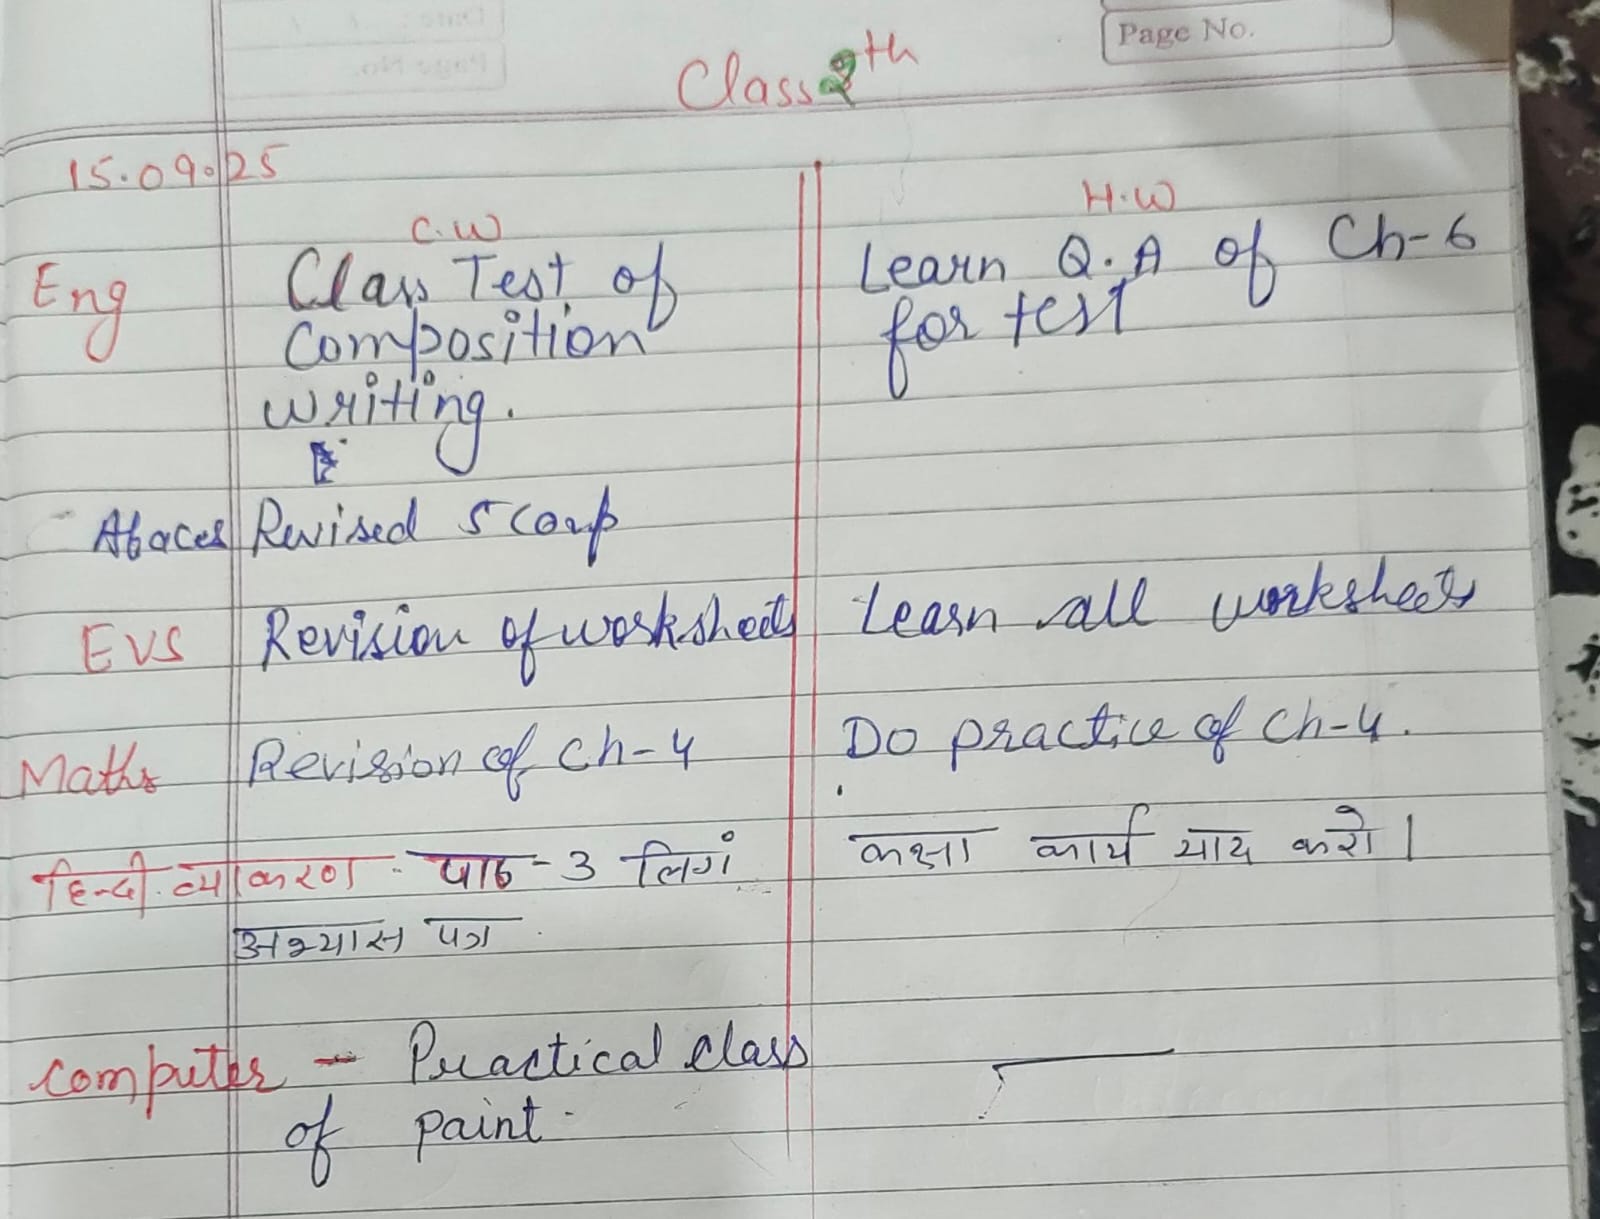 Page No.
Class 2th
15.09.25
C.W H.W
Eng Class Test of Learn Q.A of Ch-6
Composition for test
writing.
Abaces Revised 5 comp
EVS Revision of worksheets Learn all worksheets
Maths Revision of Ch-4 Do practice of Ch-4.
हिन्दी व्याकरण - पाठ - 3 लिगं कक्षा कार्य याद करो।
अभ्यास पत्र
computer - Practical class
of paint